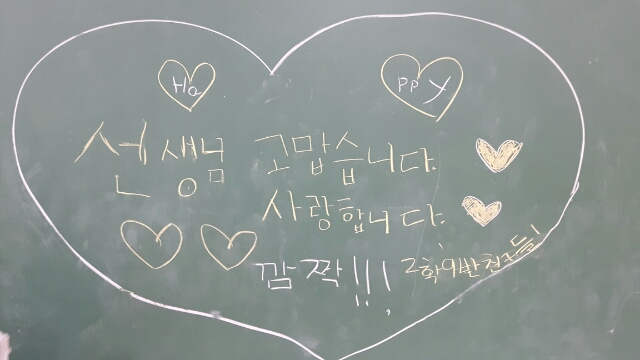 Ha ppy
선생님 고맙습니다.
사랑합니다.
깜짝!!! 2학9반친구들!